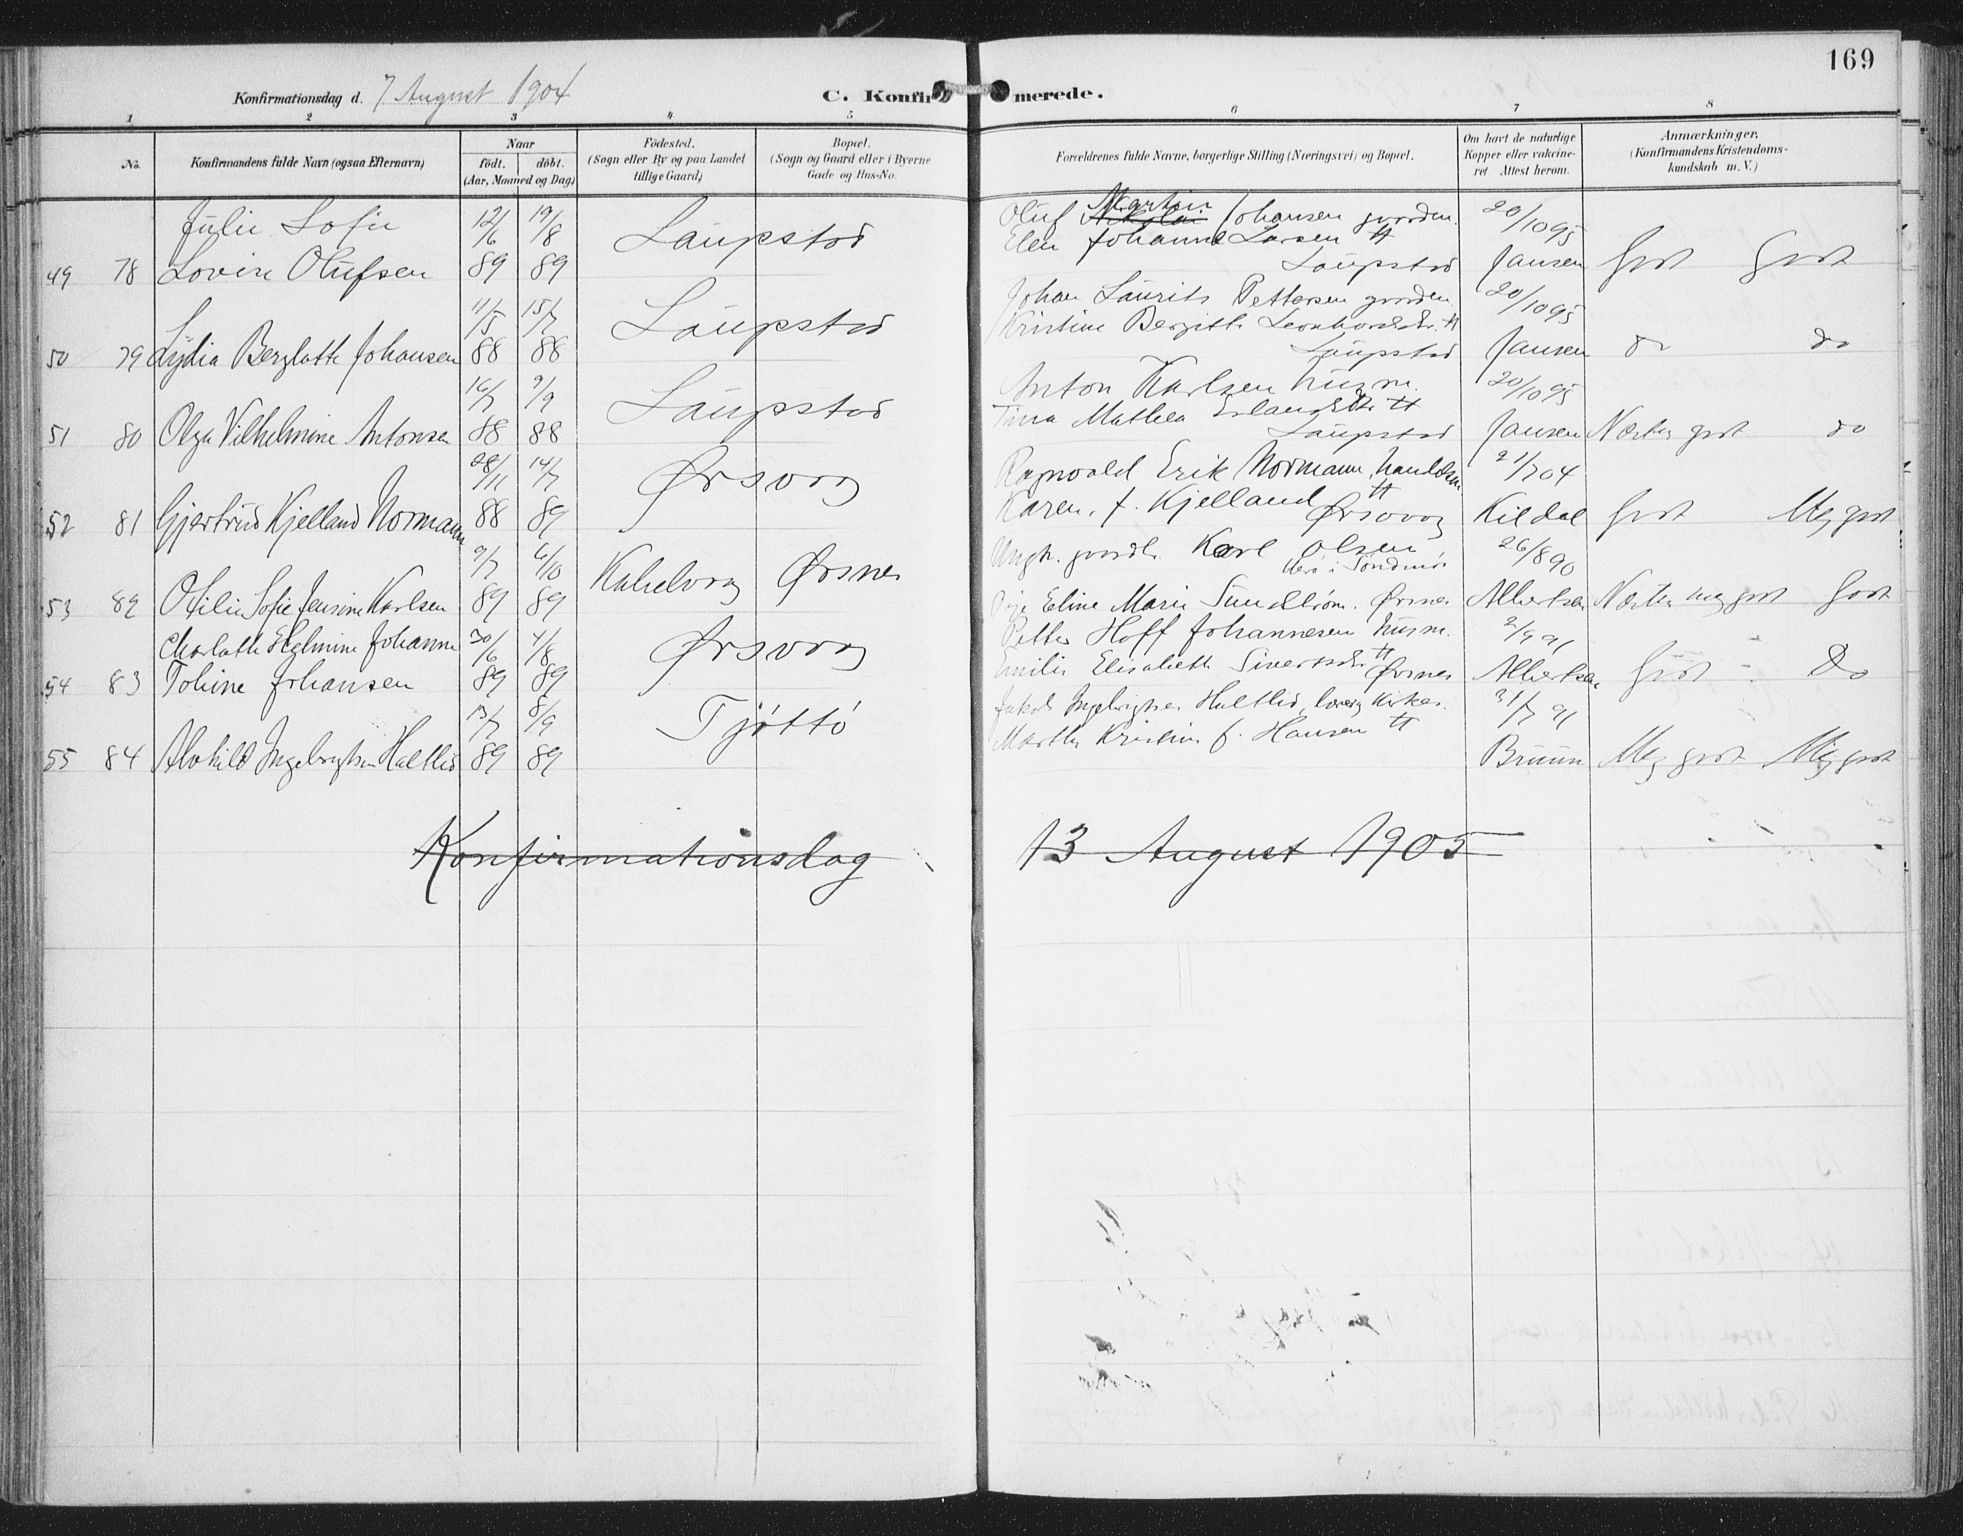 169
Konfirmationsdag d. 7 August 1904
C. Konfirmerede.
1 2 3 4 5 6 7 8
No.
Konfirmandens fulde Navn (ogsaa Efternavn)
Naar
født. døbt.
(Aar, Maaned og Dag)
Fødested.
(Sogn eller By og paa Landet
tillige Gaard)
Bopæl.
(Sogn og Gaard eller i Byerne
Gade og Hus-No.
Forældrenes fulde Navne, borgerlige Stilling (Næringsvei) og Bopæl.
Om havt de naturlige
Kopper eller vakcine-
ret Attest herom.
Anmærkninger.
(Konfirmandens Kristendoms-
kundskab m. V.)
Julie Sofie 12/6 19/8 Laupstad Oluf Martin Nikolai Johansen gaardm. 20/10 95
Elen Johanne Larsen
49 78 Lovise Olufsen 89 89 Laupstad Jansen Godt Godt
11/5 15/7 Laupstad Johan Laurits Pettersen gaardm. 20/10 95
Kristine Bergitte
50 79 Lydia Berglotte Johansen 88 88 Laupstad Jansen do do
16/7 9/9 Laupstad Anton Karlsen husm. 20/10 95
Tina Mathea
51 80 Olga Vilhelmine Antonsen 88 88 Laupstad Jansen Næsten godt do
28/11 14/7 Ørsvaag Ragnvald Erik Normann, handelsm. 21/7 04
Karen, f. Kjelland
52 81 Gjertrud Kjelland Normann 88 89 Ørsvaag Kildal Godt Meg godt
9/7 6/10 Kabelvaag Ørsnes Ungk. Karl Olsen, 26/8 90
53 82 Otilie Sofie Jensine Karlsen 89 89 Pige Eline Marie Sundstrøm. Ørsnes Albertsen Næsten meg godt Godt
Charlotte Helmine Johanne 30/6 4/8 Ørsvaag Petter Hoff Johannesen husm. 2/9 91
Emilie Elisabeth Sivertsdtr
54 83 Toline Johansen 89 89 Ørsnes Albertsen Godt - Do
13/7 8/9 Tjøttø Jakob Ingebrigtsen Haltlid, 31/7 91
Marthe Kristine f. Hansen
55 84 Alvhild Ingebrigtsen Haltlid 89 89 Bruun Meg godt Meg godt
Konfirmationsdag 13 August 1905